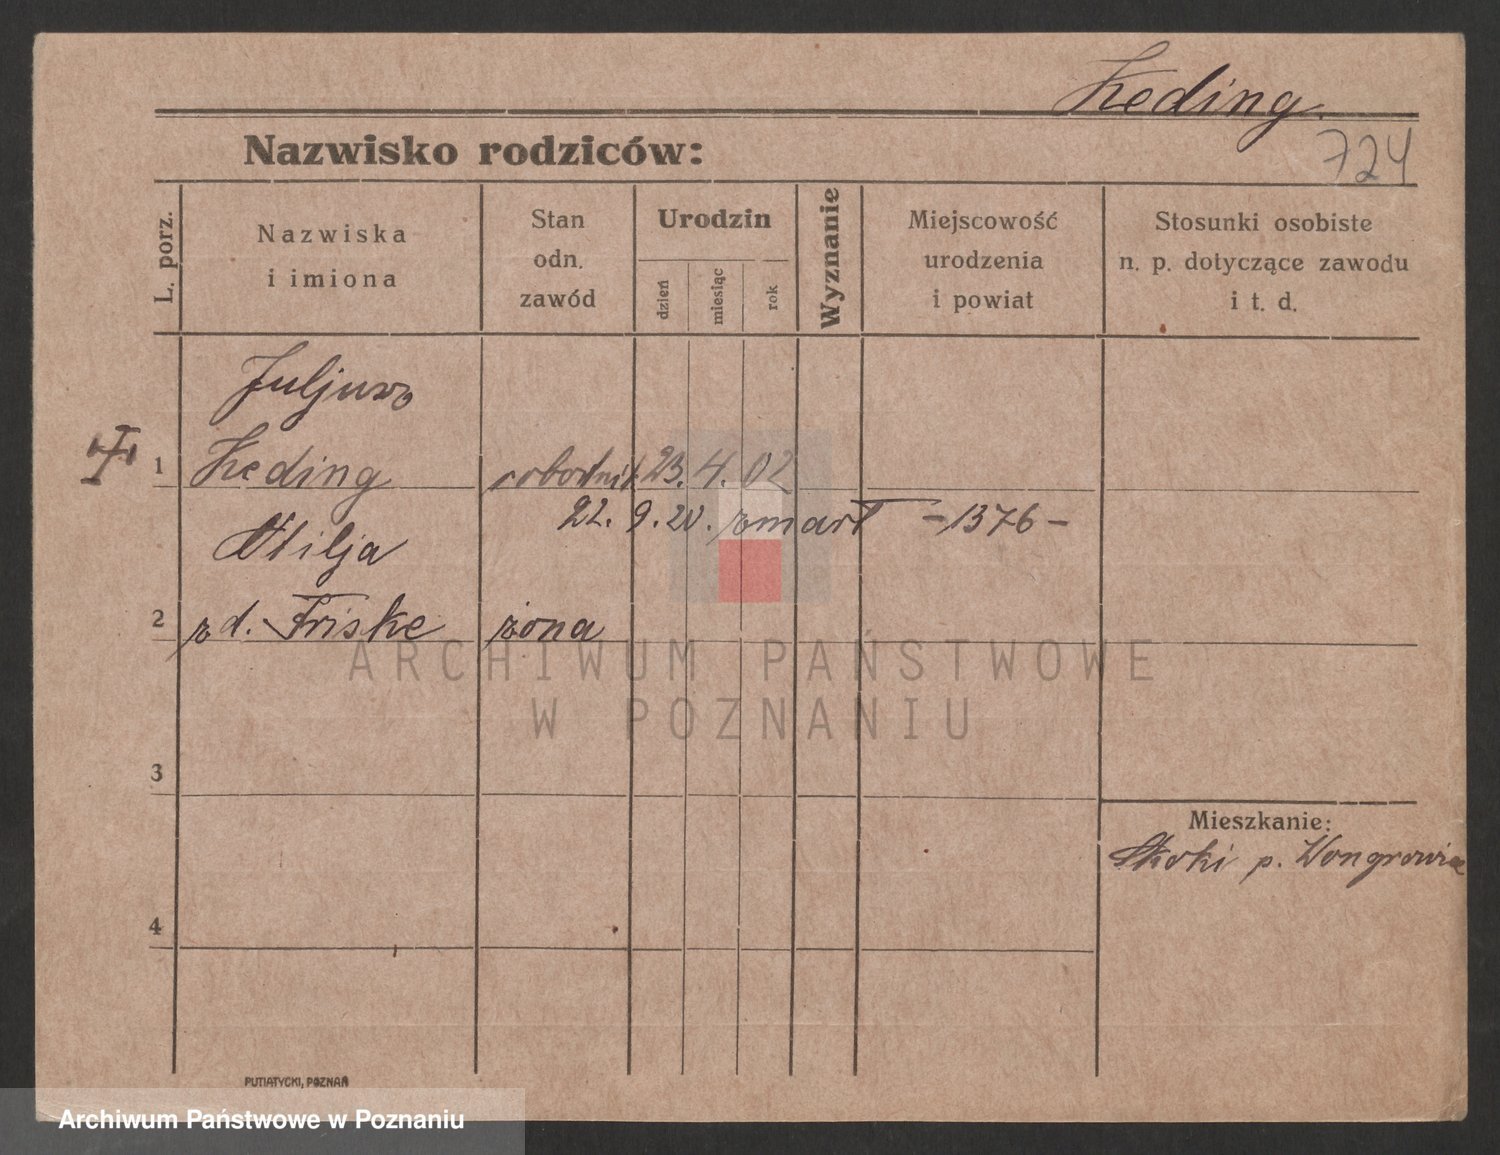 Keding.
Nazwisko rodziców:
724
L. porz.
Nazwiska
i imiona
Stan
odn.
zawód
Urodzin
dzień
miesiąc
rok
Wyznanie
Miejscowość
urodzenia
i powiat
Stosunki osobiste
n. p. dotyczące zawodu
i t. d.
Juljusz
1 Keding robotnik 23. 4. 02
22. 9. 20. zmarł -1376-
Otilja
2 zd. Friske żona
3
Mieszkanie:
Skoki p. Wongrowiec
4
PUTIATYCKI, POZNAŃ
ARCHIWUM PAŃSTWOWE
W POZNANIU
Archiwum Państwowe w Poznaniu